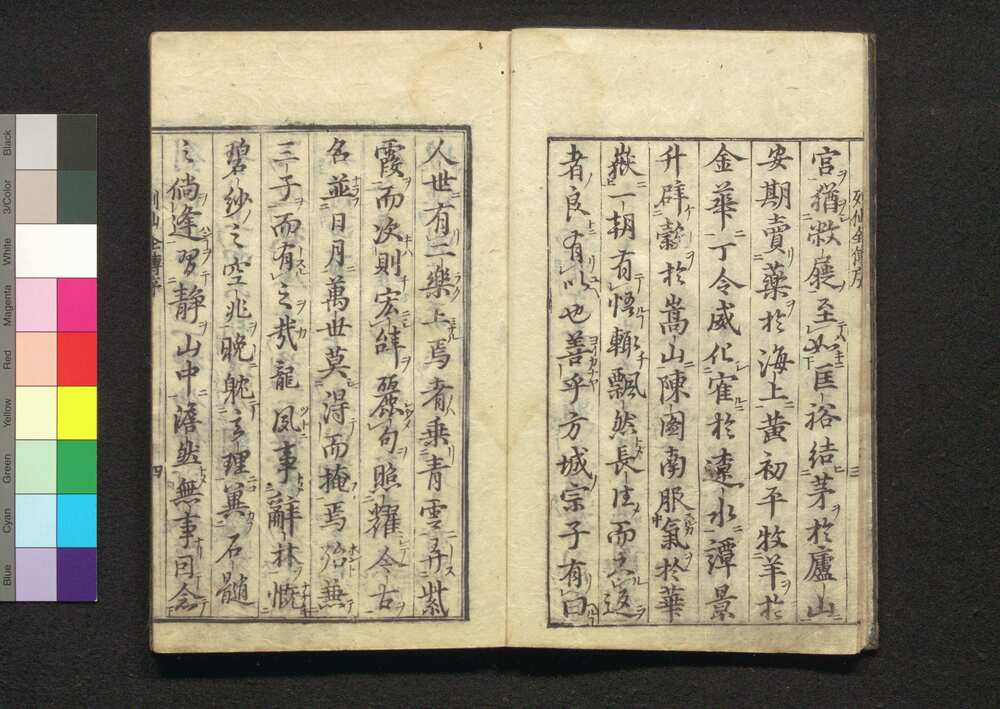 列仙全傳序
三
官猶敝屣至如匡裕結茅於廬山
安期賣藥於海上黃初平牧羊於
金華丁令威化寉於遼水譚景
升辟穀於嵩山陳圖南服氣於華
嶽一朝有悟輙飄然長往而不返
者良有以也善乎方城宗子有曰
人世有二樂上焉者乘青雲弄紫
霞而次則宏辭麗句照耀今古
名並日月萬世莫得而掩焉殆兼
三子而有之哉龍鳳事辭林慨
碧紗之空兆晚耽玄理冀石髓
之倘逢習静山中澹然無事因念
列仙全傳序
四
Black
3/Color
White
Magenta
Red
Yellow
Green
Cyan
Blue